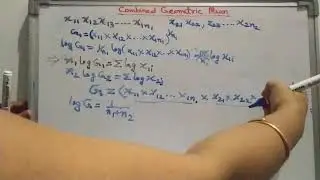 Combined Geometric Mean
x₁₁ x₁₂ x₁₃ ---- x₁n₁   x₂₁ x₂₂, x₂₃ ---- x₂n₂
G₁ = (x₁₁ × x₁₂ × ... × x₁n₁)^1/n₁
log G₁ = 1/n₁ log (x₁₁ × x₁₂ × ... × x₁n₁) log x₁ᵢ
⇒ n₁ log G₁ = Σ log x₁ᵢ
n₂ log G₂ = Σ log x₂ᵢ
G = (x₁₁ × x₁₂ ... × x₁n₁ × x₂₁ × x₂₂ ×
log G = 1/n₁+n₂